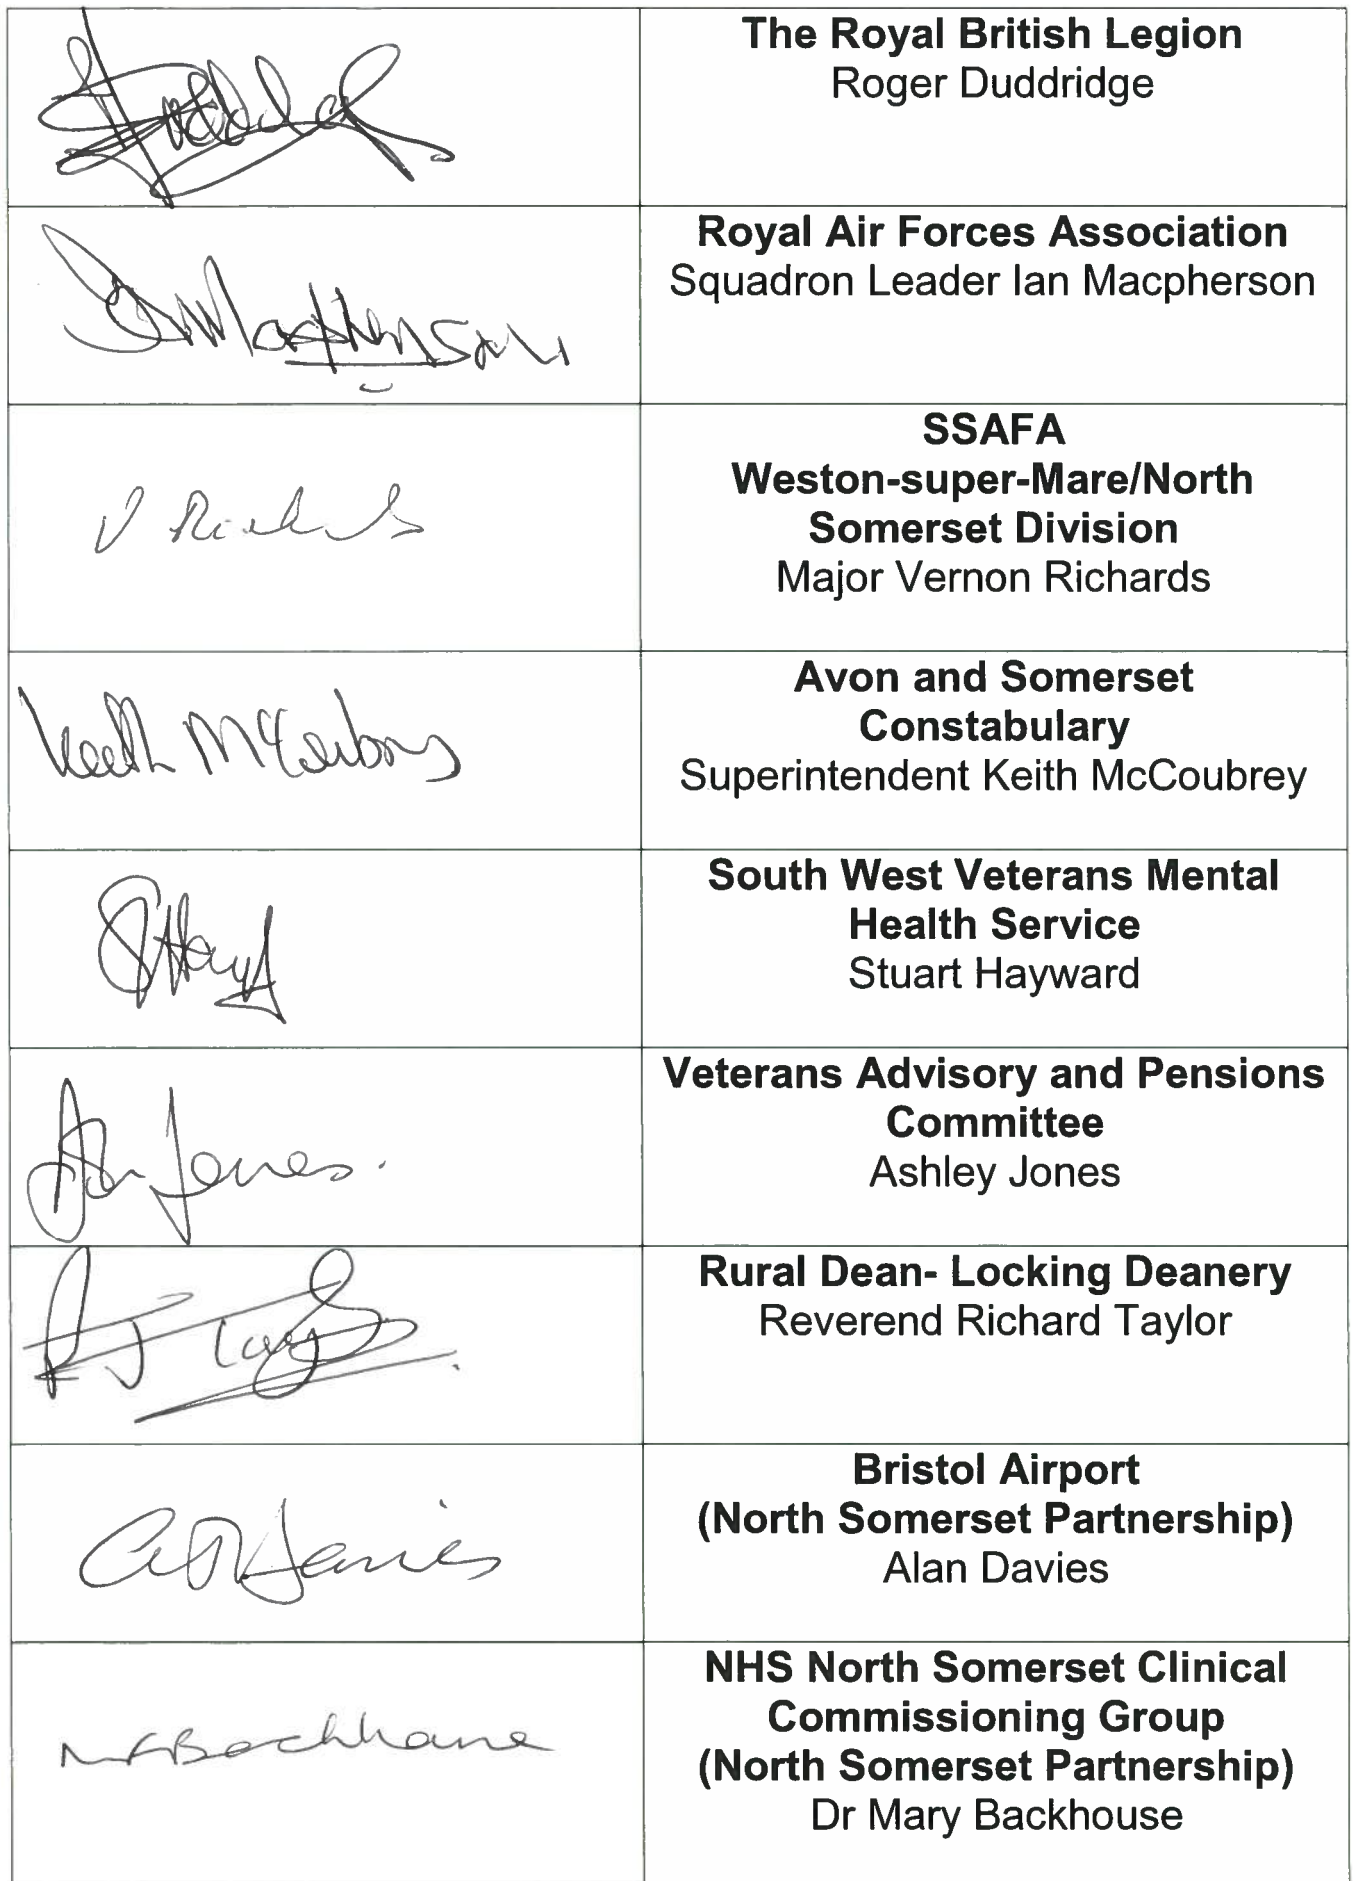 The Royal British Legion
Roger Duddridge
Royal Air Forces Association
Squadron Leader Ian Macpherson
SSAFA
Weston-super-Mare/North
Somerset Division
Major Vernon Richards
V Richards
Avon and Somerset
Constabulary
Superintendent Keith McCoubrey
Keith McCoubrey
South West Veterans Mental
Health Service
Stuart Hayward
Veterans Advisory and Pensions
Committee
Ashley Jones
Rural Dean- Locking Deanery
Reverend Richard Taylor
Bristol Airport
(North Somerset Partnership)
Alan Davies
NHS North Somerset Clinical
Commissioning Group
(North Somerset Partnership)
Dr Mary Backhouse